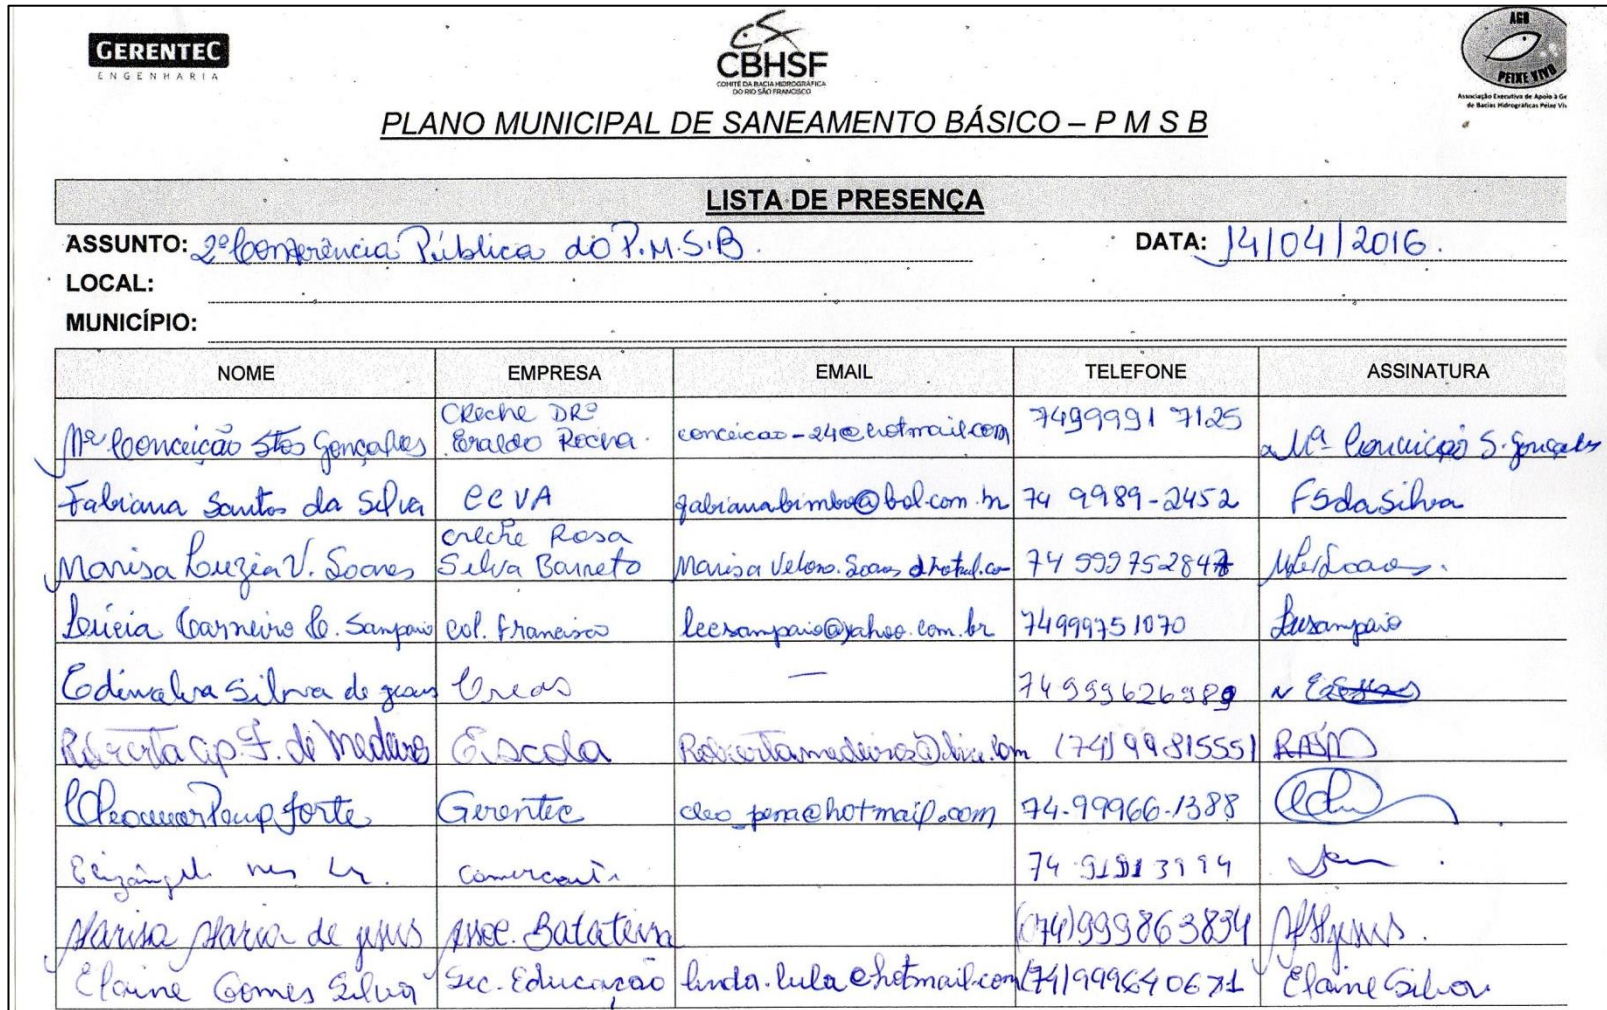 GERENTEC
ENGENHARIA
CBHSF
COMITÊ DA BACIA HIDROGRÁFICA
DO RIO SÃO FRANCISCO
AGB
PEIXE VIVO
Associação Executiva de Apoio à Ge
de Bacias Hidrográficas Peixe Viv
PLANO MUNICIPAL DE SANEAMENTO BÁSICO – P M S B
LISTA DE PRESENÇA
ASSUNTO: 2º Conferência Pública do P.M.S.B. DATA: 14/04/2016.
LOCAL:
MUNICÍPIO:
NOME EMPRESA EMAIL TELEFONE ASSINATURA
Mª Conceição Stos Gonçalves Creche DRº Eraldo Rocha. conceicao-24@hotmail.com 74999917125 Mª Conceição S. Gonçalves
Fabiana Santos da Silva CCVA fabianabimbo@bol.com.br 74 9989-2452 FSdaSilva
Marisa Luzia V. Soares Creche Rosa Silva Barreto Marisa Veloso.Soares 74 999752847
Lúcia Carneiro C. Sampaio Col. Francisco lccsampaio@yahoo.com.br 74999751070 Lusampaio
Edinalva Silva de Creas — 74 999626989
Roberta Ap. F. de Medeiros Escola Robertamedeiros@live.com (74) 99815551
forte Gerentec cleo_pena@hotmail.com 74-99966-1388
Comerciante 74
Marisa Maria de Jesus Assoc. Batateira (074)999863834
Elaine Gomes Silva Sec. Educação linda.lula@hotmail.com (74)999640671 Elaine Silva